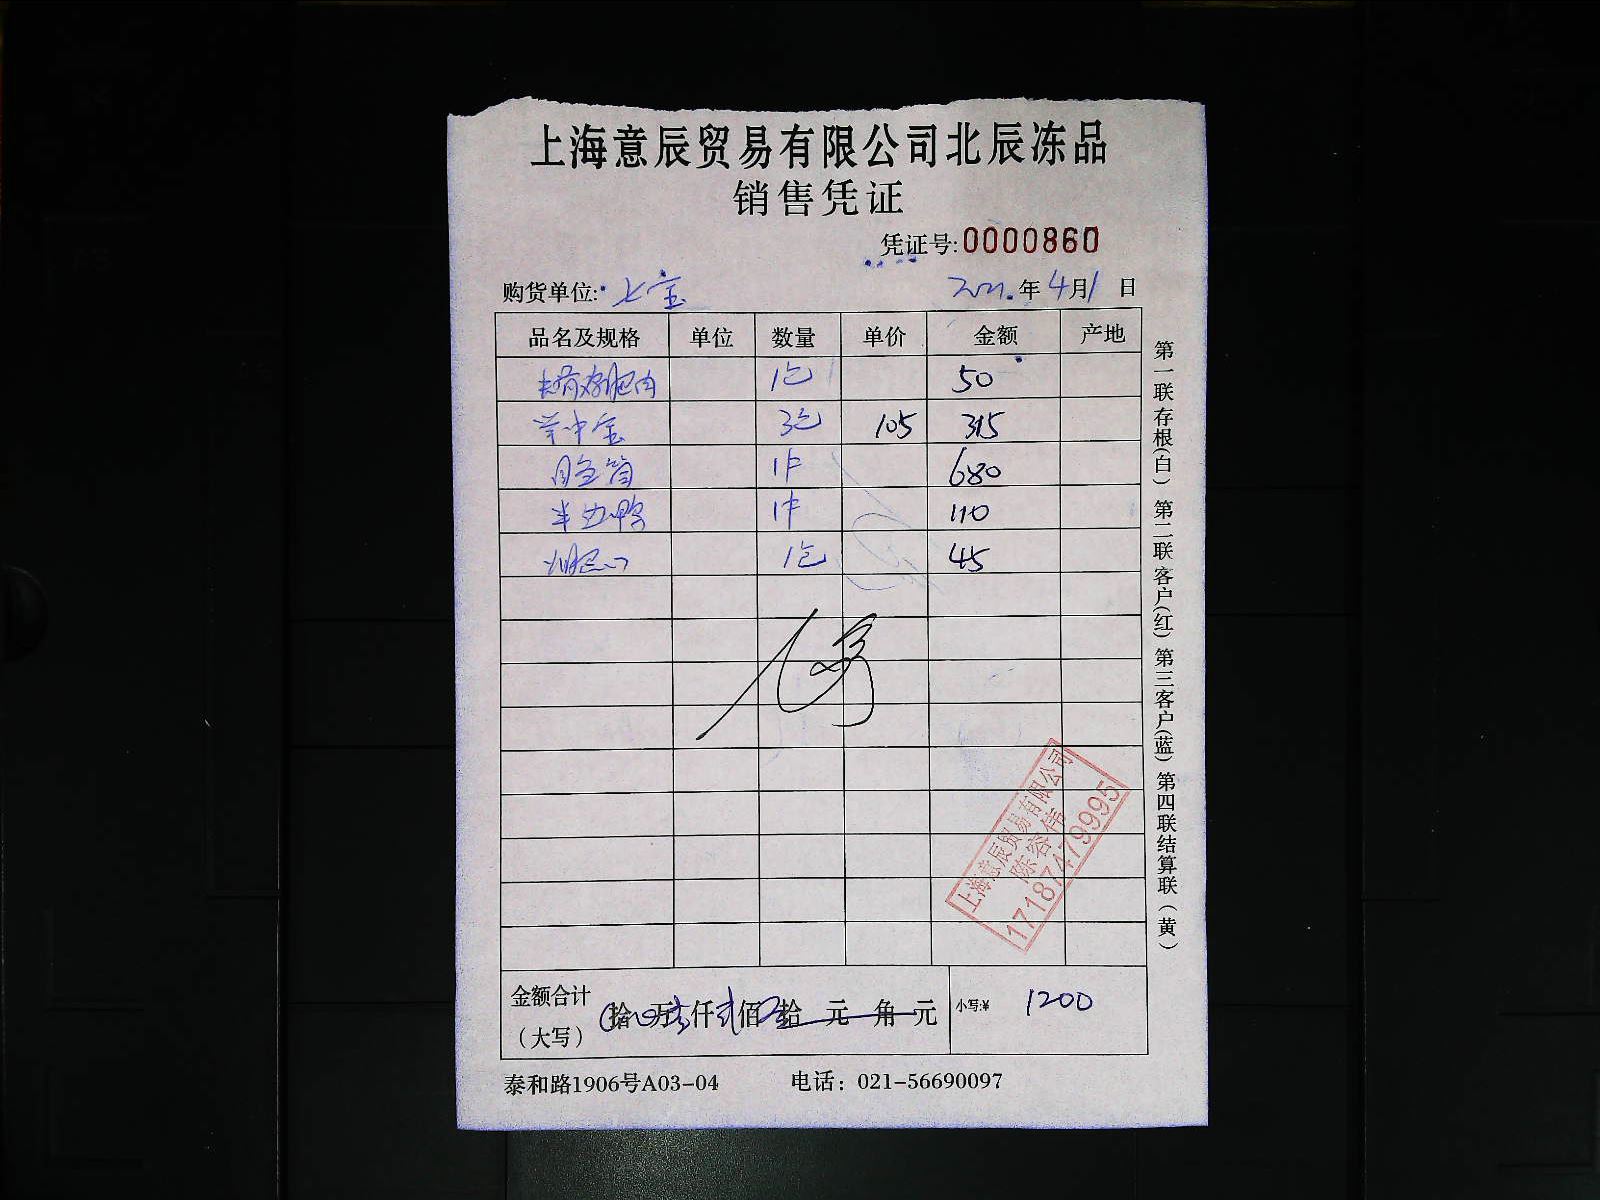 上海意辰贸易有限公司北辰冻品
销售凭证
凭证号:0000860
购货单位: 七宝 2021.年4月1日
品名及规格 单位 数量 单价 金额 产地
1包 50
3包 105 315
1件 680
半边鸭 1件 110
1包 45
上海意辰贸易有限公司
陈容伟
17187479995
金额合计
(大写) 拾万壹仟贰佰拾元角元 小写:¥ 1200
泰和路1906号A03-04 电话：021-56690097
第一联存根(白) 第二联客户(红) 第三客户(蓝) 第四联结算联(黄)